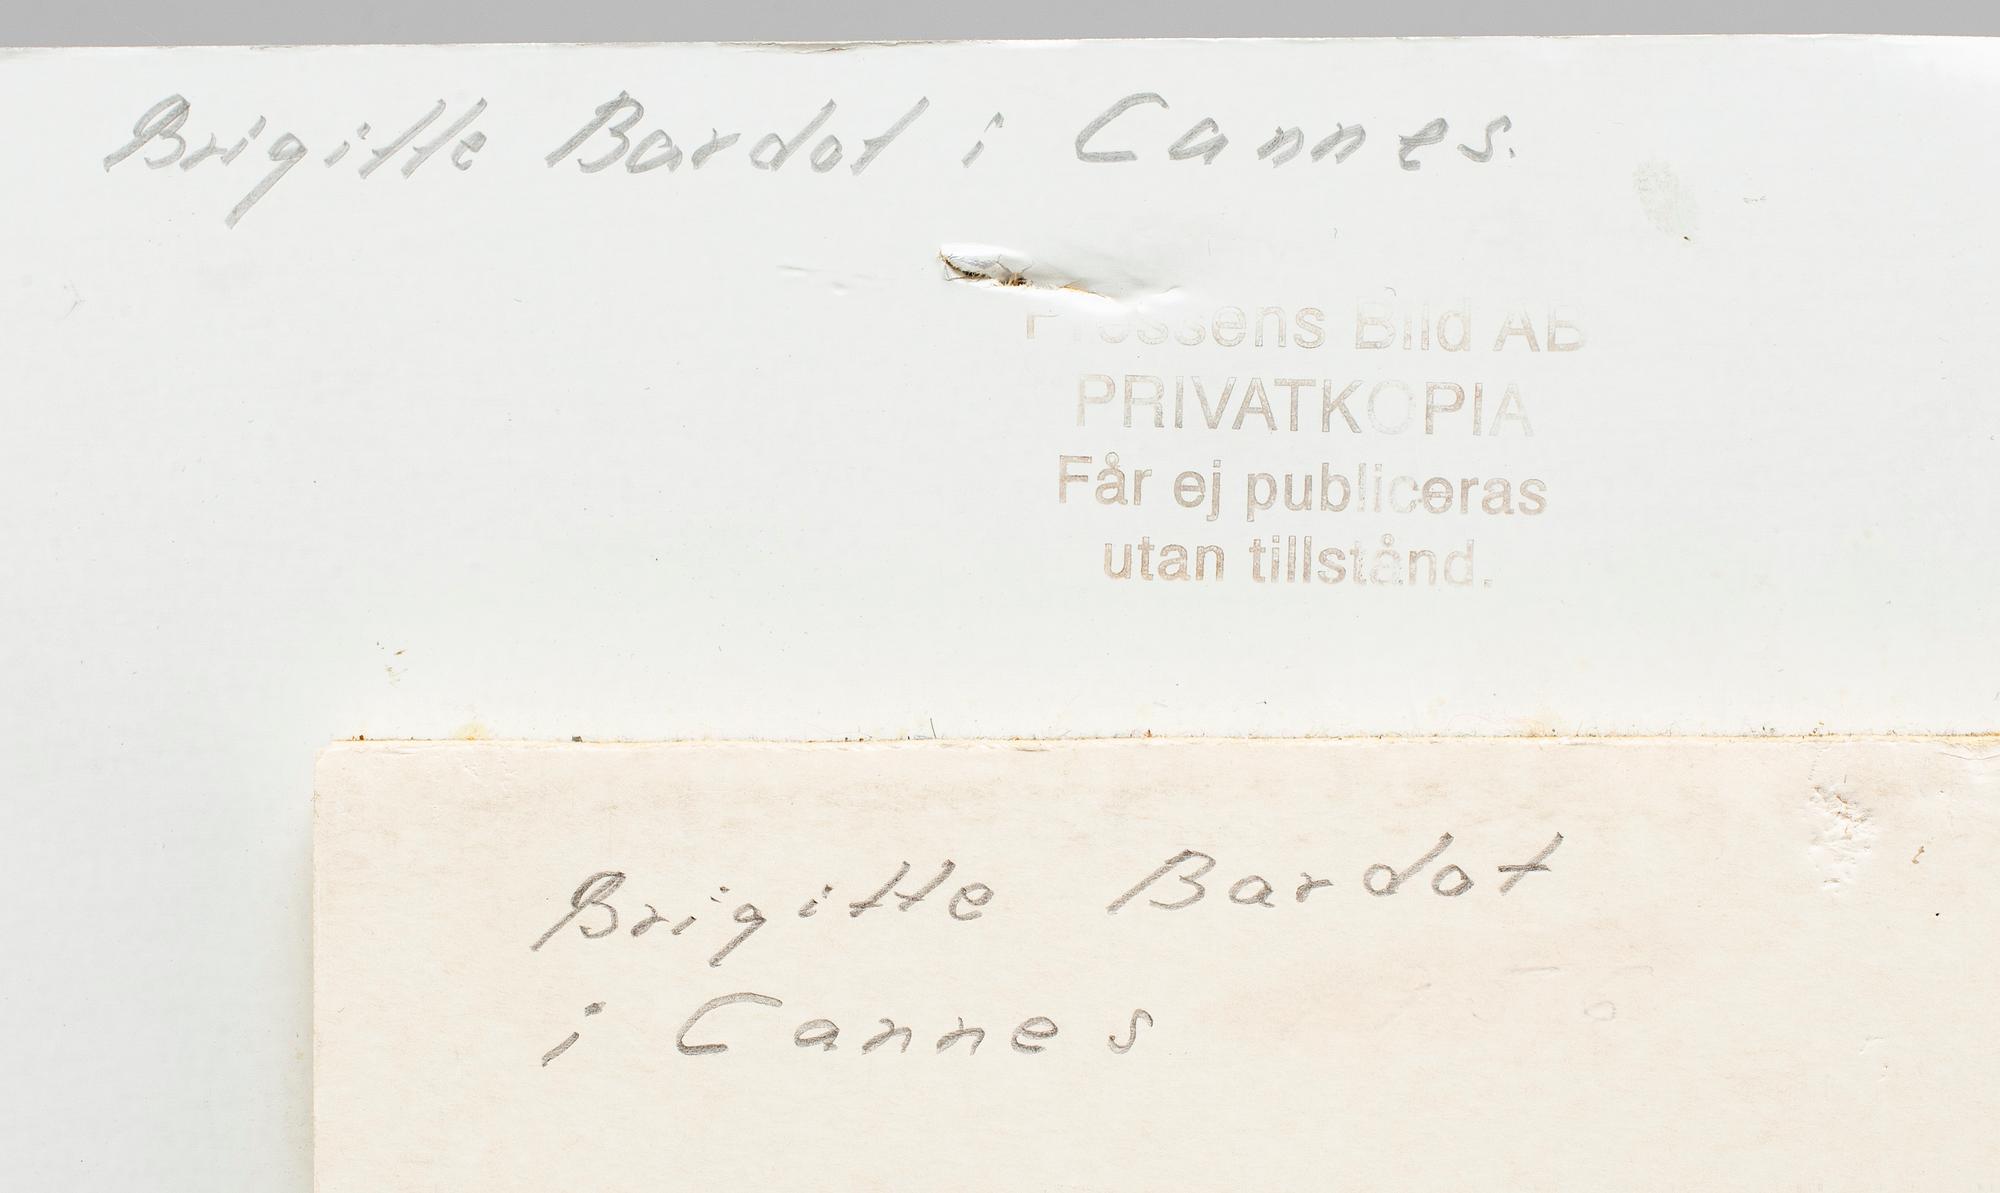 Brigitte Bardot i Cannes.
Pressens Bild AB
PRIVATKOPIA
Får ej publiceras
utan tillstånd.
Brigitte Bardot
i Cannes